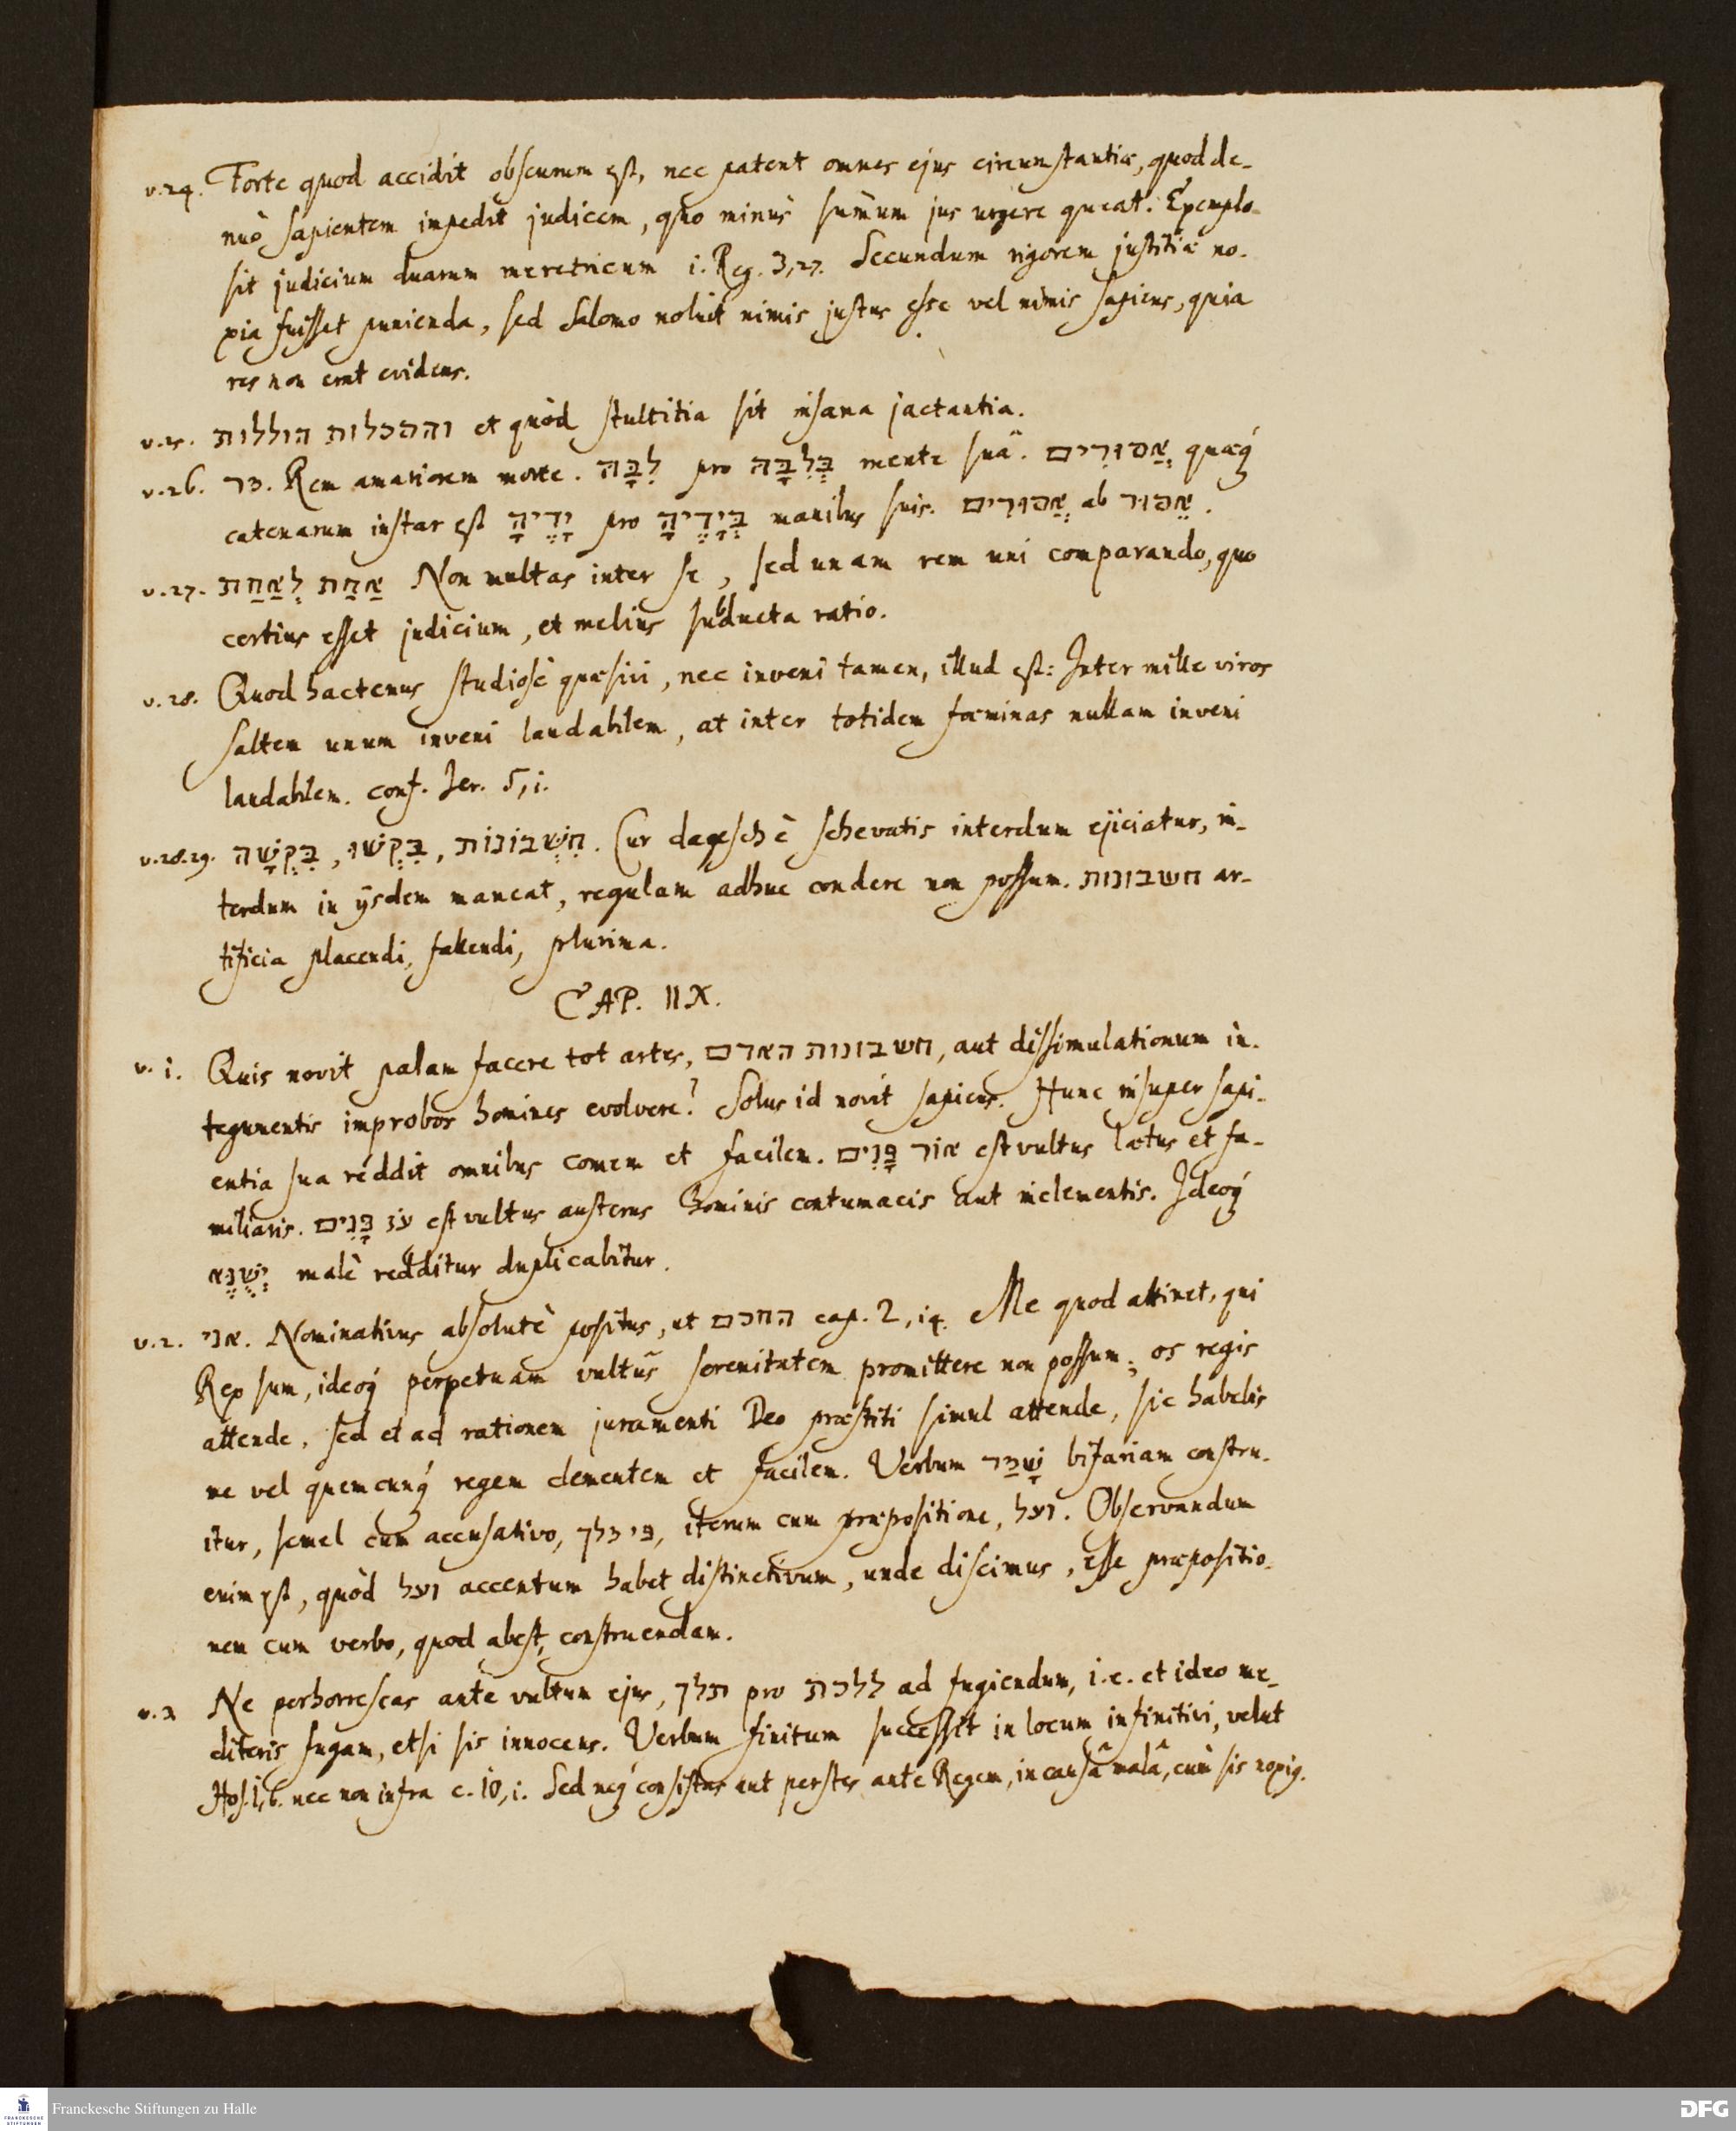 v.24. Forte quod accidit obscurum est, nec patent omnes ejus circumstantiæ, quod de-
nuò sapientem impedit judicem, quo minus sum̄um jus urgere queat. Exemplo
sit judicium duarum meretricum i. Reg. 3,27. Secundum rigorem justitiæ no-
xia fuisset punienda, sed Salomo noluit nimis justus esse vel nimis sapiens, quia
res non erat evidens.
v.25. והסכלות הוללות et quòd stultitia sit insana jactantia.
v.26. מר. Rem amariorem morte. לִבָּהּ pro בְּלִבָּהּ mente suâ. אֲסוּרִים quæq́
catenarum instar est יָדֶיהָ pro בְּיָדֶיהָ manibus suis. אֲסוּרִים ab אֵסוּר.
v.27. אַחַת לְאַחַת Non multas inter se, sed unam rem uni comparando, quo
certius esset judicium, et melius subducta ratio.
v.28. Quod hactenus studiosè quæsivi, nec inveni tamen, illud est: Inter mille viros
saltem unum inveni laudabilem, at inter totidem fœminas nullam inveni
laudabilem. conf. Jer. 5,i.
v.28.29. בִּקְשָׁה, בִּקְשׁוּ, חִשְּׁבוֹנוֹת. Cur dagesch è schevatis interdum ejiciatur, in-
terdum in ijsdem maneat, regulam adhuc condere non possum. חשבונות ar-
tificia placendi, fallendi, plurima.
CAP. IIX.
v. i. Quis novit palam facere tot artes, חשבונות האדם, aut dissimulationum in-
tegumentis improbos homines evolvere? Solus id novit sapiens. Hunc insuper sapi-
entia sua reddit omnibus comem et facilem. אור פָּנִים est vultus lætus et fa-
miliaris. עֹז פָּנִים est vultus austerus hominis contumacis aut inclementis. Ideoq́
יְשֻׁנֶּא malè redditur duplicabitur.
v.2. אני. Nominativus absolutè positus, ut החכם cap. 2,i4. Me quod attinet, qui
Rex sum, ideoq́ perpetuam vultûs serenitatem promittere non possum; os regis
attende, sed et ad rationem juramenti Deo præstiti simul attende, sic habebis
me vel quemcunq́ regem clementem et facilem. Verbum שָׁמַר bifariam constru-
itur, semel cum accusativo, פי מלך, iterum cum præpositione, ועל. Observandum
enim est, quòd ועל accentum habet distinctivum, unde discimus, esse præpositio-
nem cum verbo, quod abest, construendam.
v.3 Ne perhorrescas ante vultum ejus, תלך pro ללכת ad fugiendum, i.e. et ideo me-
diteris fugam, etsi sis innocens. Verbum finitum successit in locum infinitivi, velut
Hos.1,6. nec non infra c. 10,i. Sed neq́ consistas aut perstes ante Regem, in causâ malâ, cùm sis